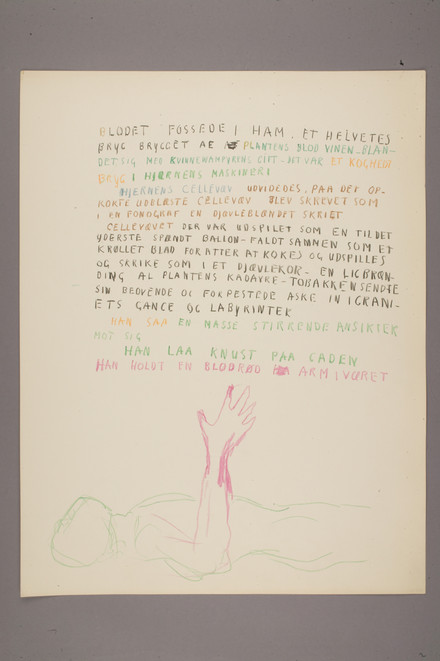 BLODET FOSSEDE I HAM. ET HELVETES
BRYG BRYGGET AF PLANTENS BLOD VINEN-BLAN-
DET SIG MED KVINNEVAMPYRENS GIFT - DET VAR ET KOGHEDT
BRYG I HJERNENS MASKINERI
HJERNENS CELLEVÆV UDVIDEDES, PAA DET OP-
KOKTE UDBLÆSTE CELLEVÆV BLEV SKREVET SOM
I EN FONOGRAF EN DJÆVLEBLÆNDT SKRIFT
CELLEVÆVET DER VAR UDSPILET SOM EN TIL DET
YDERSTE SPÆNDT BALLON - FALDT SAMMEN SOM ET
KRØLLET BLAD FOR ATTER AT KOKES OG UDSPILLES
OG SKRIKE SOM I ET DJÆVLEKOR - EN LIGBRÆN-
DING AF PLANTENS KADAVRE - TOBAKKEN SENDTE
SIN BEDØVENDE OG FORPESTEDE ASKE IN I KRANI-
ETS GANGE OG LABYRINTER
HAN SAA EN MASSE STIRRENDE ANSIKTER
MOT SIG
HAN LAA KNUST PAA GADEN
HAN HOLDT EN BLODRØD ARM I VÆRET